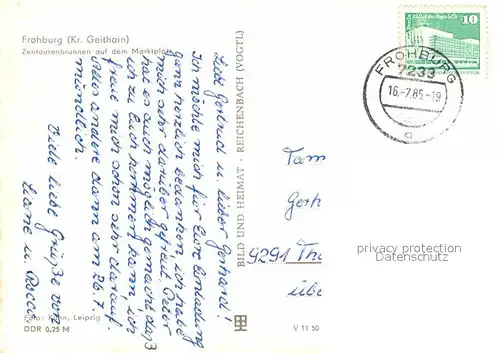 Frohburg (Kr. Geithain)
Zentaurenbrunnen auf dem Marktplatz
Liebe Gertrud u. lieber Gerhard!
Ich möchte mich für Eure Einladung
ganz herzlich bedanken, ich habe
mich sehr darüber gefreut. Peter
hat es auch möglich gemacht, daß
ich zu Euch kommen kann, ich
freue mich schon sehr darauf.
Alles andere dann am 26.7.
mündlich.
Viele liebe Grüße von
Liane u.
Foto: Leipzig
DDR 0,25 M
BILD UND HEIMAT · REICHENBACH (VOGTL)
V 11 50
10
FROHBURG
7233
16.-7.85.-19
a
Fam
Gerh
9291 Th
übe
privacy protection
Datenschutz